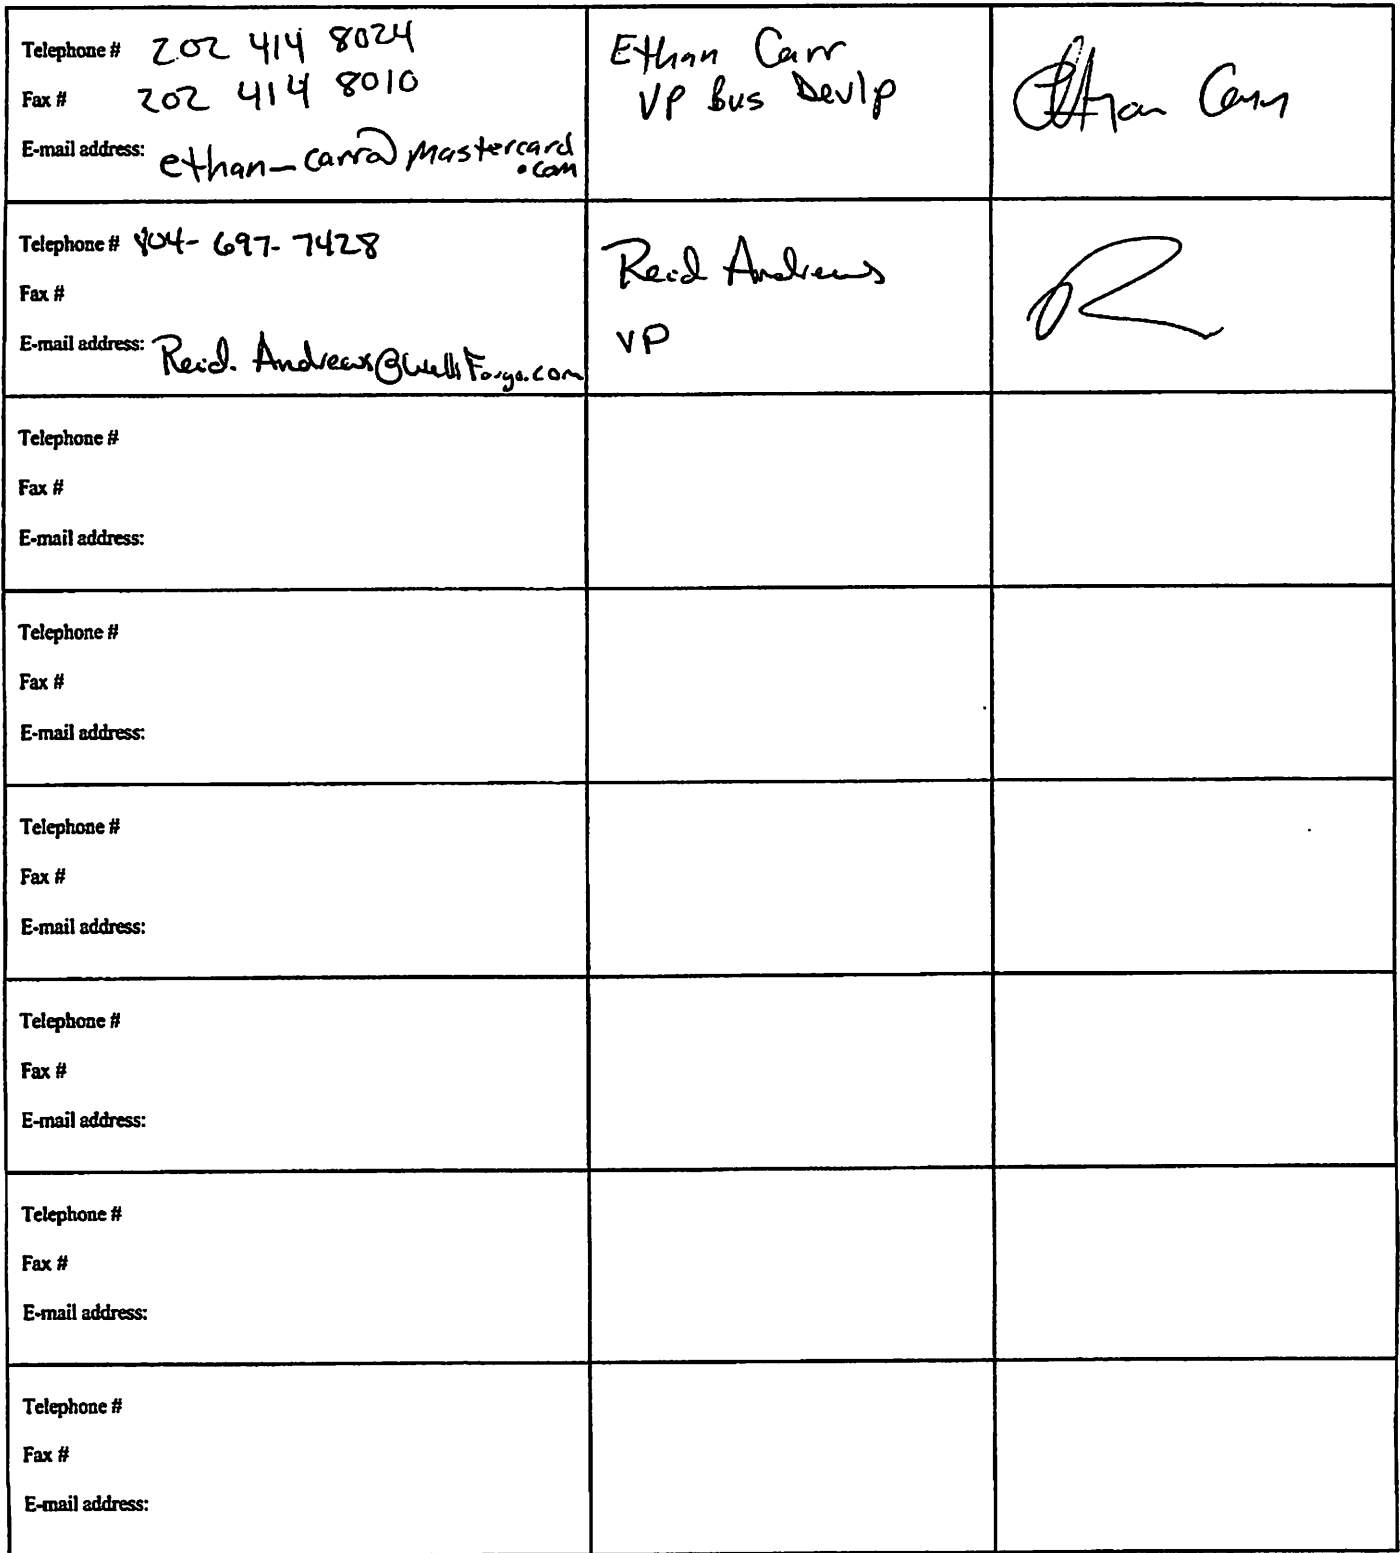 Telephone # 202 414 8024
Fax # 202 414 8010
E-mail address: ethan_carr@mastercard
.com
Ethan Carr
VP Bus Devlp
Ethan Carr
Telephone # 804-697-7428
Fax #
E-mail address: Reid.Andrews@WellsFargo.com
Reid Andrews
VP
Telephone #
Fax #
E-mail address:
Telephone #
Fax #
E-mail address:
Telephone #
Fax #
E-mail address:
Telephone #
Fax #
E-mail address:
Telephone #
Fax #
E-mail address:
Telephone #
Fax #
E-mail address: